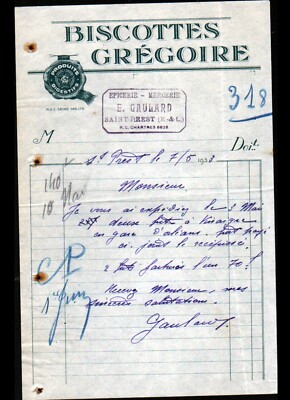 BISCOTTES
GRÉGOIRE
PRODUITS
DIGESTIFS
EPICERIE - MERCERIE
E. GAULARD
SAINT-PREST (E.-&-L.)
R.C. CHARTRES 6626
318
M
Doit
St Prest le 7/5 1938
Monsieur
Je vous ai expédié le 3 Mai
deux fûts à vinaigre
en gare d'Orléans port payé
ci-joint le récépissé.
2 fûts facturés l'un 70 f
Recevez Monsieur, mes
sincères salutations.
Gaulard